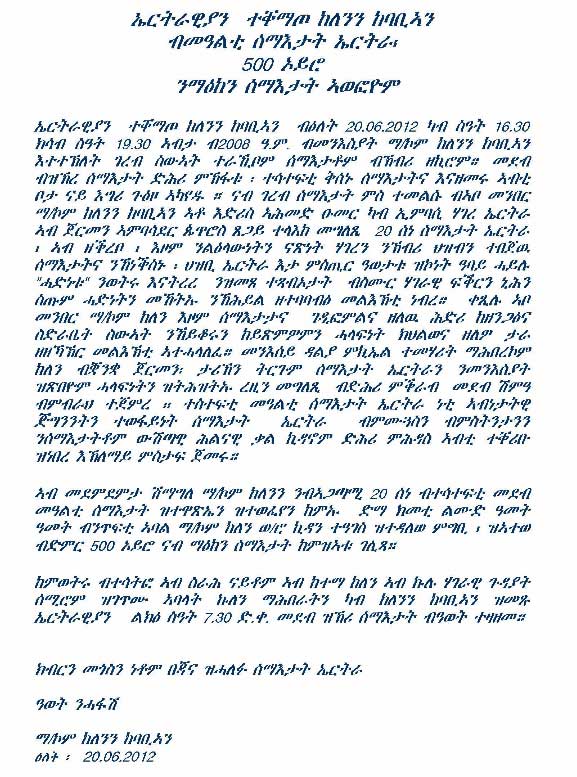 ኤርትራዊያን ተቐማጦ ከለንን ከባቢኣን
ብመዓልቲ ሰማእታት ኤርትራ፥
500 ኦይሮ
ንማዕከን ሰማእታት ኣወፎዮም
ኤርትራዊያን ተቐማጦ ከለንን ከባቢኣን ብዕለት 20.06.2012 ካብ ሰዓት 16.30
ክሳብ ሰዓት 19.30 ኣብታ ብ2008 ዓ.ም. ብመንእሰያት ማሕኮም ከለንን ከባቢኣን
እተተኽለት ገረብ ስውኣት ተራኺቦም ሰማእታቶም ብኽብሪ ዘኪሮም። መደብ
ብዝኽረ ሰማእታት ድሕሪ ምኽፋቱ ፡ ተሳተፍቲ ቅሰኑ ሰማእታትና እናዘመሩ ኣብቲ
ቦታ ናይ እግሪ ጉዕዞ ኣካየዱ ። ናብ ገረብ ሰማእታት ምስ ተመልሱ ብኣቦ መንበር
ማሕኮም ከለንን ከባቢኣን ኣቶ እድሪስ ኣሕመድ ዑመር ካብ ኢምባሲ ሃገረ ኤርትራ
ኣብ ጀርመን ኣምባሳደር ጴጥሮስ ጸጋይ ተላእከ መግለጺ 20 ሰነ ሰማእታት ኤርትራ
፡ ኣብ ዘቕረቦ ፡ እዞም ንልዕላውነትን ናጽነት ሃገረን ንኽብሪ ህዝብን ተበጀዉ
ሰማእታትና ንኽነቕስኑ ፡ ህዝቢ ኤርትራ እታ ምስጢር ዓወታቱ ዝኮነት ዓባይ ሓይሉ
"ሓድነቱ" ንወትሩ እናትረረ ንዝመጸ ተጻብኦታት ብስሙር ሃገራዊ ፍቕርን ኒሕን
ስጡም ሓድነትን መኽትኡ ንኽሕይል ዘተባብዕ መልእኽቲ ነብረ። ቀጺሉ ኣቦ
መንበር ማሕኮም ከለን እዞም ሰማእታትና ገዲፎምልና ዘለዉ ሕድሪ ከዘንጋዕን
ስድራቤት ስውኣት ንኽይቆሩን ከይጽምዎምን ሓላፍነት ክህልወና ዘለዎ ታራ
ዘዘኻኽር መልእኽቲ ኣተሓላለፈ። መንእሰይ ዳሊያ ምኪኤል ተመሃሪት ማሕበረኮም
ከለን ብቛንቋ ጀርመን፡ ታሪኽን ትርጉም ሰማእታት ኤርትራን ንመንእሰያት
ዝጽበዮም ሓላፍነትን ዝትሕዝትኡ ረዚን መግለጺ ብድሕሪ ምቕራብ መደብ ሽምዓ
ብምብራህ ተጀምረ ። ተሳተፍቲ መዓልቲ ሰማእታት ኤርትራ ነቲ ኣብነታትዊ
ጅግንንትን ተወፋይነት ሰማእታት ኤርትራ ብምሙጓስን ብምስትንታንን
ንሰማእታትዶም ውሽጣዊ ሕልናዊ ቃል ኪዳኖም ድሕሪ ምሕዳስ ኣብቲ ተቐሪቡ
ዝነበረ እኽለማይ ምስታፍ ጀመሩ።
ኣብ መደምደምታ ሽማግለ ማሕኮም ከለንን ንብኣጋጣሚ 20 ሰነ ብተሳተፍቲ መደብ
መዓልቲ ሰማእታት ዝተዋጽኤን ዝተወፈየን ከምኡ ድማ ከመቲ ልሙድ ዓመት
ዓመት ብንጥፍቲ ኣባል ማሕኮም ከለን ወ/ሮ ኪዳን ተጎጎስ ዝተዳለወ ምግቢ ፡ ዝኣተወ
ብድምር 500 ኦይሮ ናብ ማዕከን ሰማእታት ከምዝኣቱ ገሊጹ።
ከምወትሩ ብተሳትፎ ኣብ ስራሕ ናይቶም ኣብ ከተማ ከለን ኣብ ኩሉ ሃገራዊ ጉዳያት
ሰሚሮም ዝገጥሙ ኣባላት ኩለን ማሕበራትን ካብ ከለንን ከባቢኣን ዝመጹ
ኤርትራዊያን ልክዕ ሰዓት 7.30 ድ.ቀ. መደብ ዝኽሪ ሰማእታት ብዓወት ተዛዘመ።
ክብርን መጎስን ነቶም በጃና ዝሓለፉ ሰማእታት ኤርትራ
ዓወት ንሓፋሽ
ማሕኮም ከለንን ከባቢኣን
ዕለት ፡ 20.06.2012